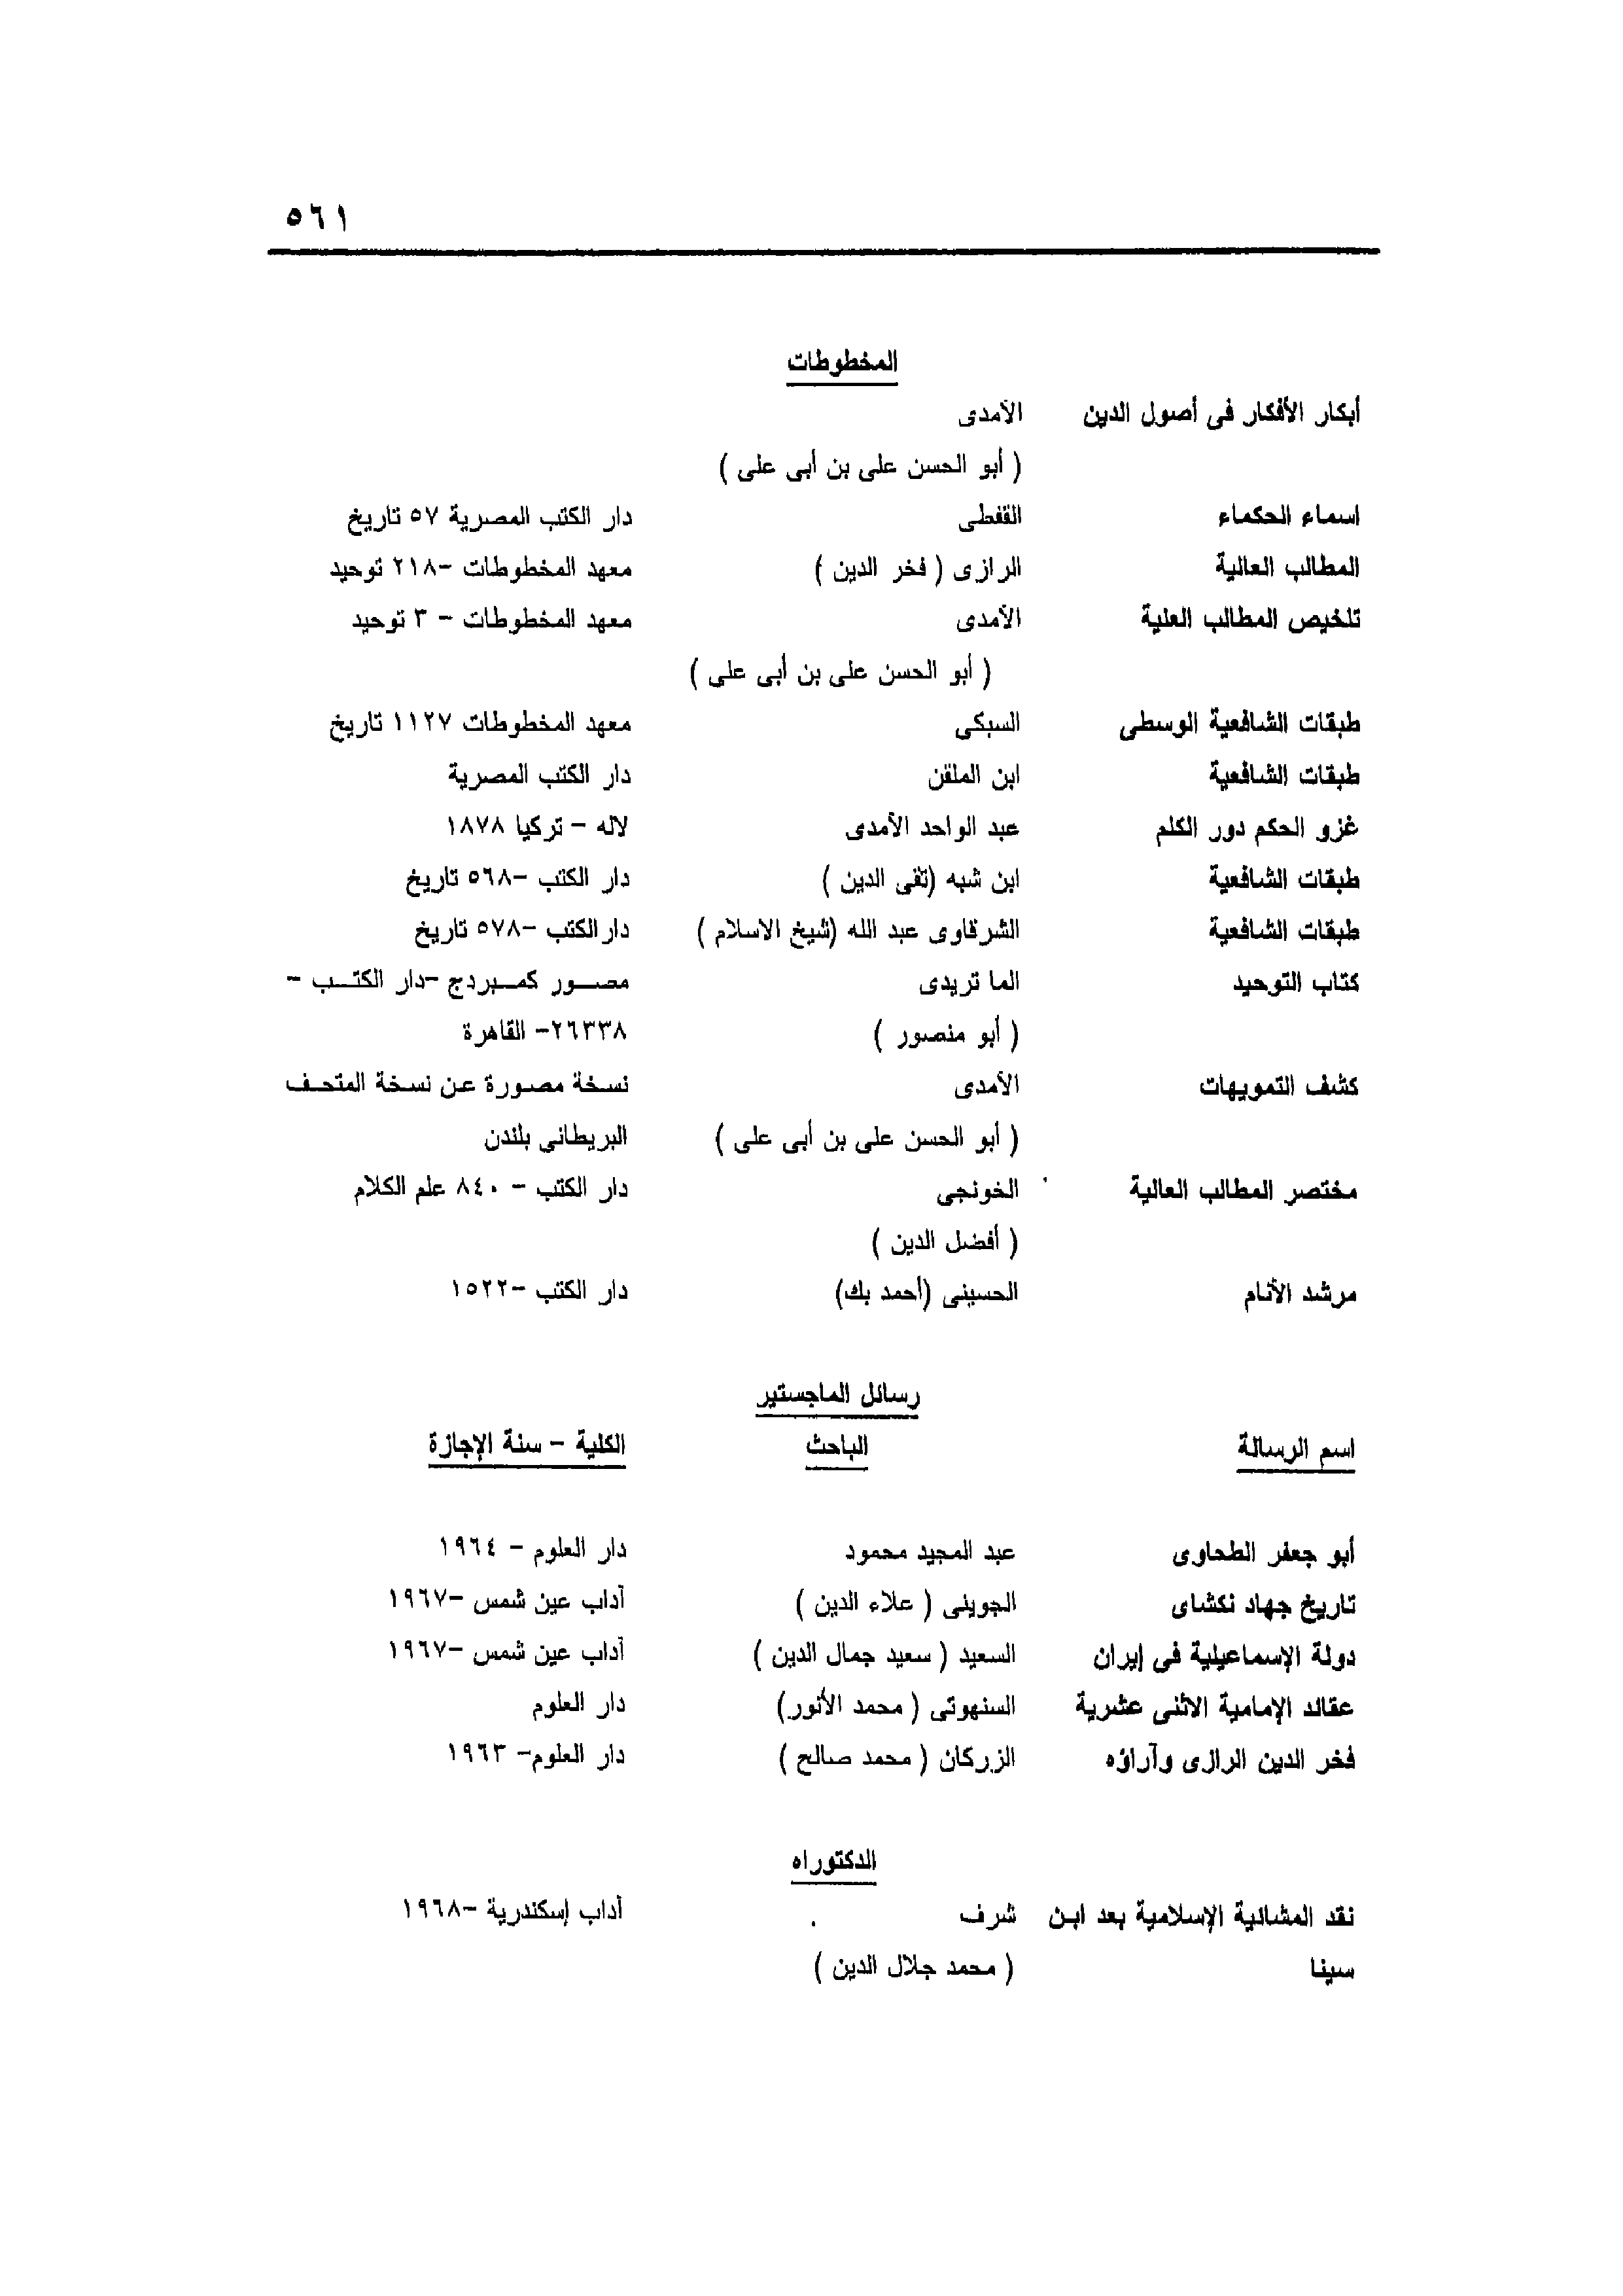 ٥٦١
المخطوطات
أبكار الأفكار فى أصول الدين الآمدى
( أبو الحسن على بن أبى على )
اسماء الحكماء القفطى دار الكتب المصرية ٥٧ تاريخ
المطالب العالية الرازى ( فخر الدين ) معهد المخطوطات -٢١٨ توحيد
تلخيص المطالب العلية الآمدى معهد المخطوطات - ٣ توحيد
( أبو الحسن على بن أبى على )
طبقات الشافعية الوسطى السبكى معهد المخطوطات ١١٢٧ تاريخ
طبقات الشافعية ابن الملقن دار الكتب المصرية
غزو الحكم دور الكلم عبد الواحد الآمدى لاله - تركيا ١٨٧٨
طبقات الشافعية ابن شبه (تقى الدين ) دار الكتب -٥٦٨ تاريخ
طبقات الشافعية الشرقاوى عبد الله (شيخ الاسلام ) دارالكتب -٥٧٨ تاريخ
كتاب التوحيد الما تريدى مصور كمبردج -دار الكتب -
( أبو منصور ) ٢٦٣٣٨- القاهرة
كشف التمويهات الآمدى نسخة مصورة عن نسخة المتحف
( أبو الحسن على بن أبى على ) البريطانى بلندن
مختصر المطالب العالية الخونجى دار الكتب - ٨٤٠ علم الكلام
( أفضل الدين )
مرشد الأنام الحسينى (أحمد بك) دار الكتب -١٥٢٢
رسائل الماجستير
اسم الرسالة الباحث الكلية - سنة الإجازة
أبو جعفر الطحاوى عبد المجيد محمود دار العلوم - ١٩٦٤
تاريخ جهاد نكشاى الجوينى ( علاء الدين ) آداب عين شمس -١٩٦٧
دولة الإسماعيلية فى إيران السعيد ( سعيد جمال الدين ) آداب عين شمس -١٩٦٧
عقائد الإمامية الاثنى عشرية السنهوتى ( محمد الأنور) دار العلوم
فخر الدين الرازى وآراؤه الزركان ( محمد صالح ) دار العلوم- ١٩٦٣
الدكتوراه
نقد المشائية الإسلامية بعد ابن شرف آداب إسكندرية -١٩٦٨
سينا ( محمد جلال الدين )